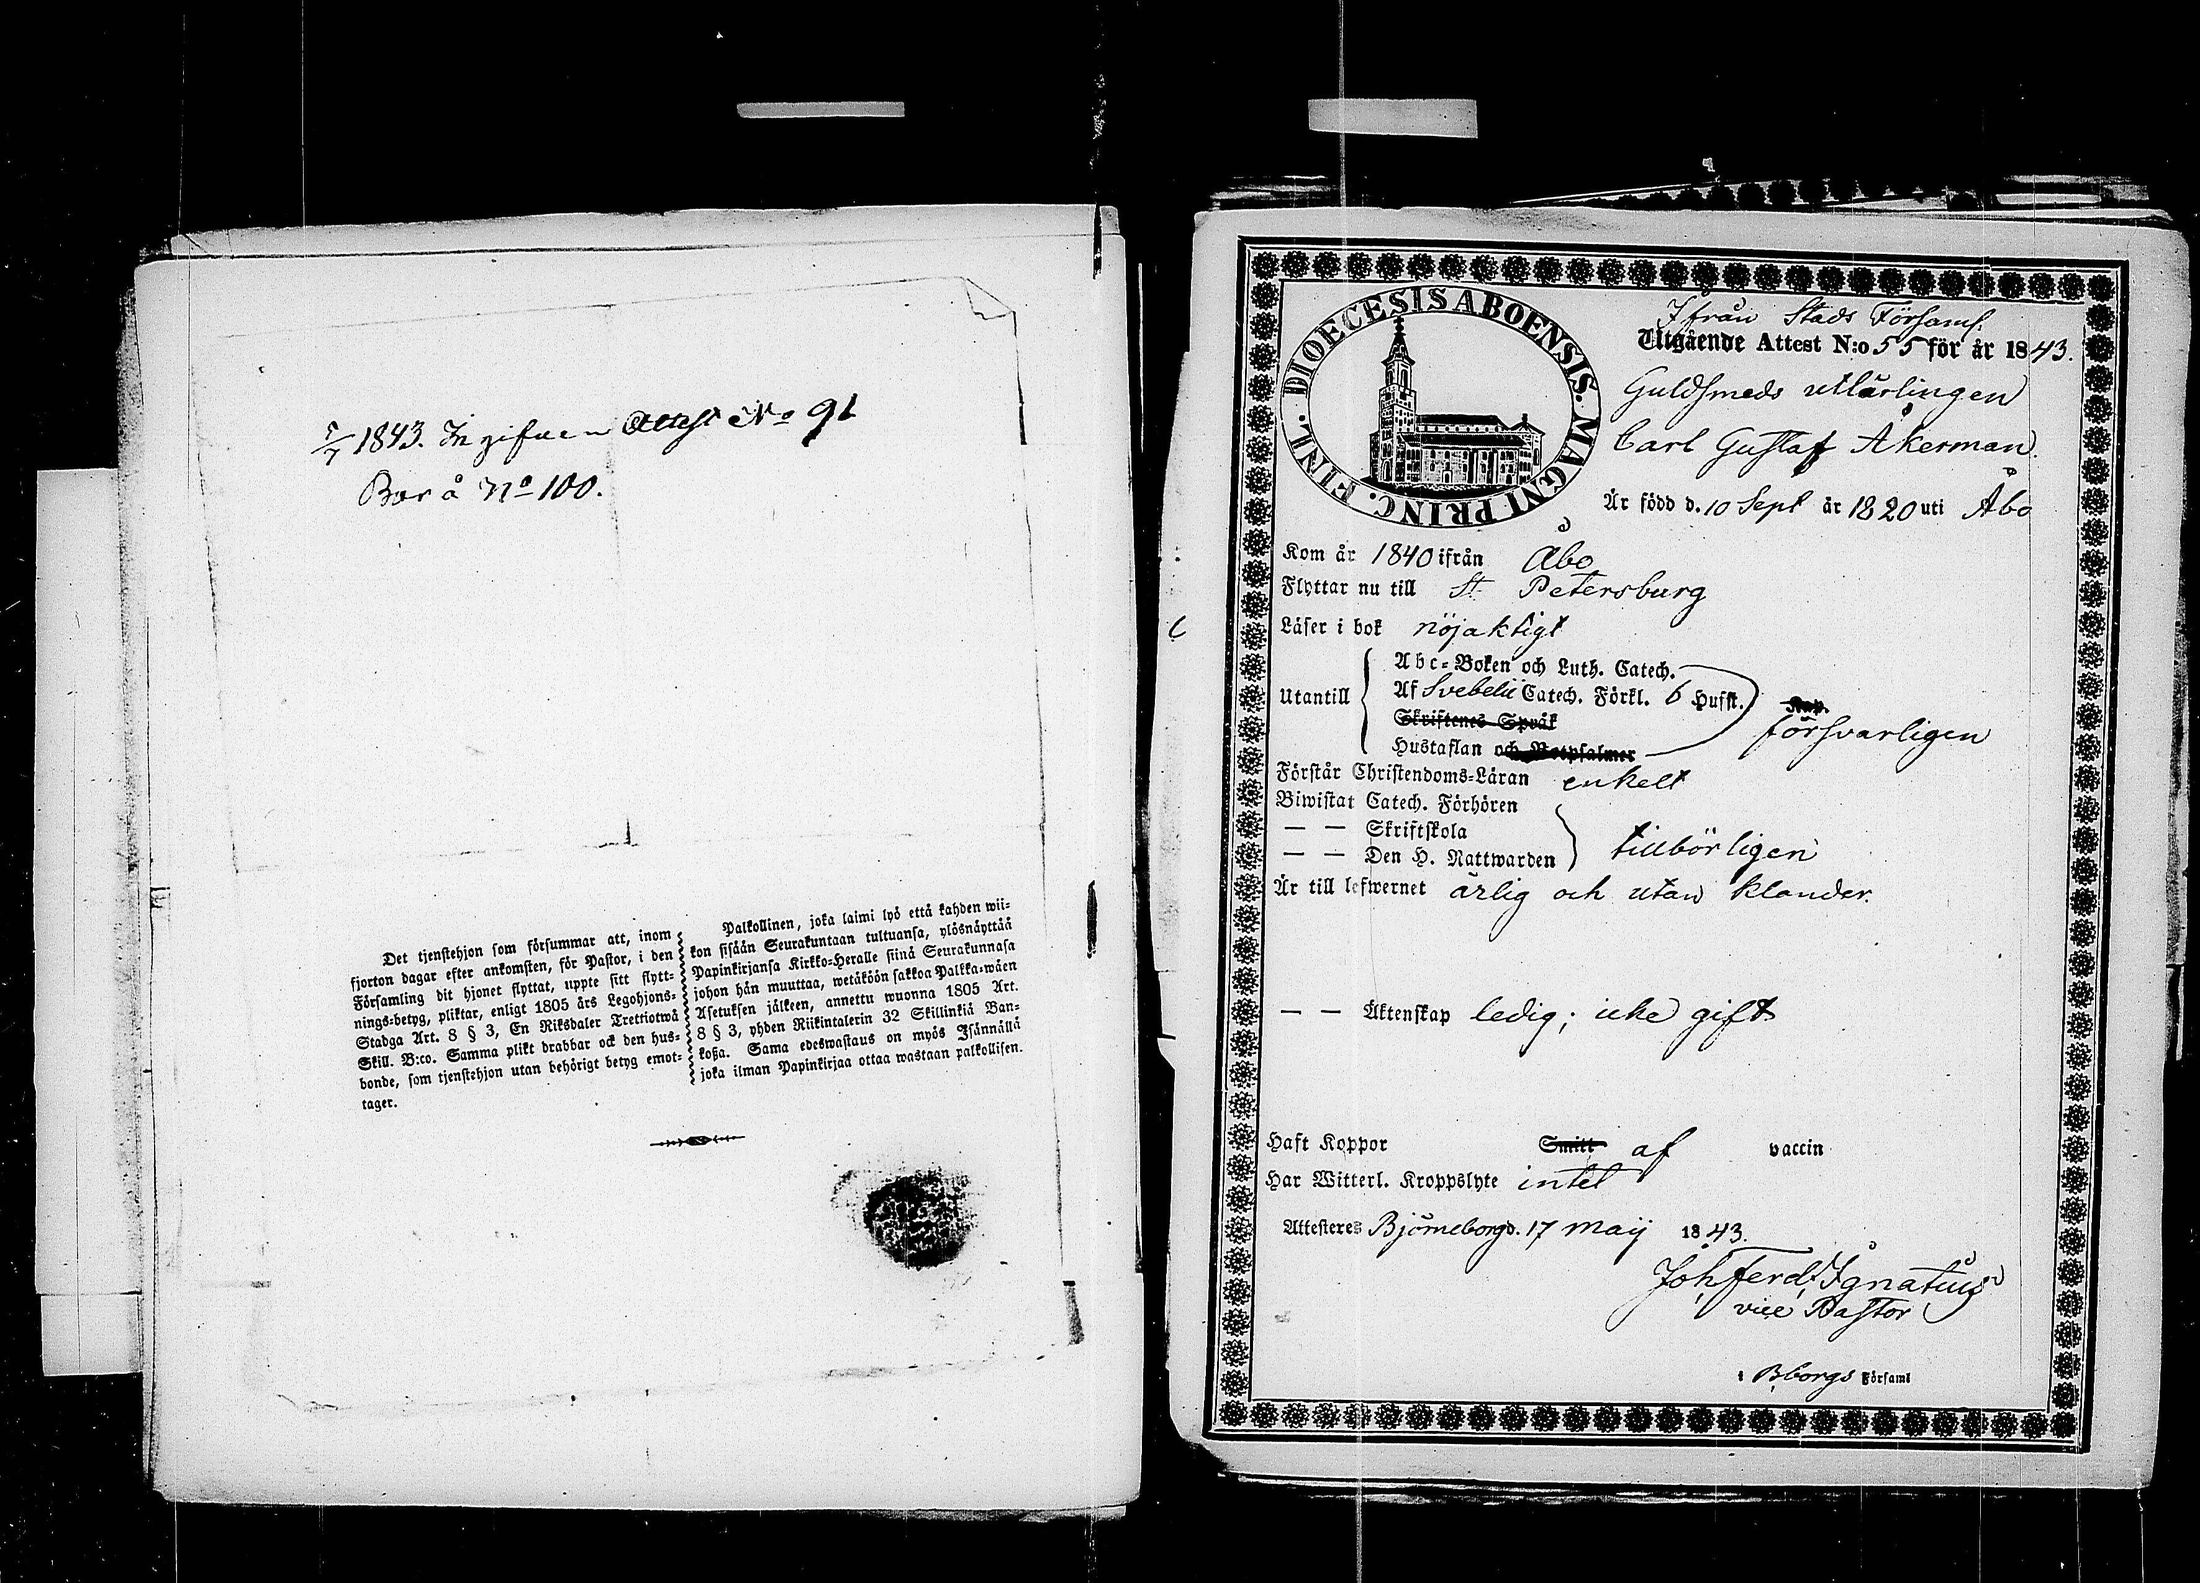 5/7 1843. Ingifven Attest No 91
Bor å No 100.
Det tjenstehjon som försummar att, inom
fjorton dagar efter ankomsten, för Pastor, i den
Församling dit hjonet flyttat, uppte sitt flytt-
nings-betyg, pliktar, enligt 1805 års Legohjons-
Stadga Art. 8 § 3, En Riksdaler Trettiotwå
Skill. B:co. Samma plikt drabbar ock den hus-
bonde, som tjenstehjon utan behörigt betyg emot-
tager.
Palkollinen, joka laimi lyö että kahden wii-
kon sisään Seurakuntaan tultuansa, ylösnäyttää
Papinkirjansa Kirkko-Heralle siinä Seurakunnasa
johon hän muuttaa, wetäköön sakkoa Palkka-wäen
Asetuksen jälkeen, annettu wuonna 1805 Art.
8 § 3, yhden Riikintalerin 32 Skillinkiä Ban-
koßa. Sama edeswastaus on myös Isännällä
joka ilman Papinkirjaa ottaa wastaan palkollisen.
DIOECESIS ABOENSIS. MAGNI PRINC. FINL.
Ifrån Stads Församl.
Utgående Attest N:o 55 för år 1843.
Guldsmeds utlärlingen
Carl Gustaf Åkerman.
Är född d. 10 Sept år 1820 uti Åbo
Kom år 1840 ifrån Åbo
Flyttar nu till St Petersburg
Läser i bok nöjaktigt
Utantill
Abc-Boken och Luth. Catech.
Af Svebelii Catech. Förkl. 6 Hufst.
Skriftenes Språk
Hustaflan och Botpsalmer
försvarligen
Förstår Christendoms-Läran enkelt
Biwistat Catech. Förhören
— — Skriftskola
— — Den H. Nattwarden
tillbörligen
Är till lefwernet ärlig och utan klander.
— — Äktenskap ledig; icke gift
Haft Koppor Smitt af vaccin
Har Witterl. Kroppslyte intet
Attesteres Björneborg d. 17 Maij 1843.
Joh. Ferd. Ignatius
vice Pastor
i Bborgs Församl